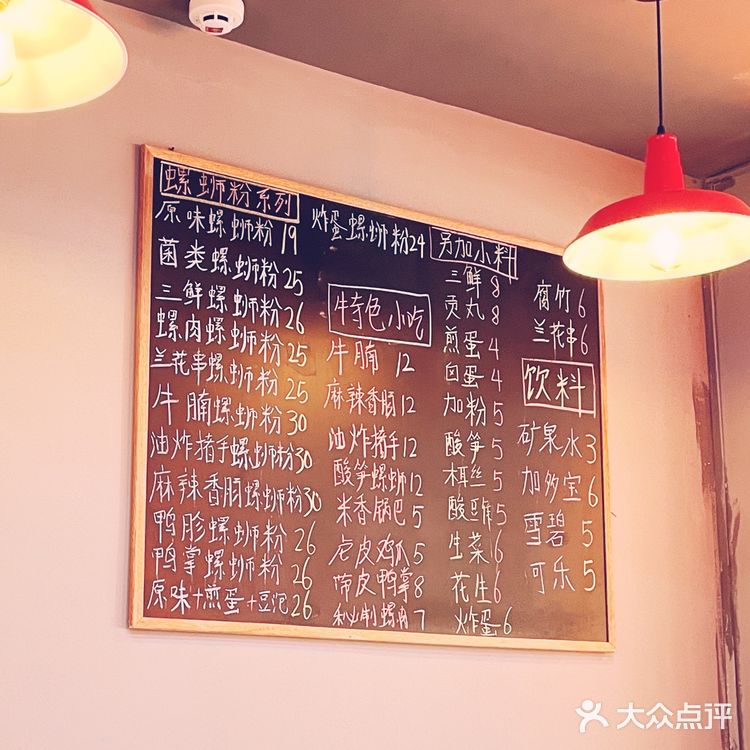 螺蛳粉系列
原味螺蛳粉 19
菌类螺蛳粉 25
三鲜螺蛳粉 26
螺肉螺蛳粉 25
兰花串螺蛳粉 25
牛腩螺蛳粉 30
油炸猪手螺蛳粉 30
麻辣香肠螺蛳粉 30
鸭胗螺蛳粉 26
鸭掌螺蛳粉 26
原味+煎蛋+豆泡 26
炸蛋螺蛳粉 24
特色小吃
牛腩 12
麻辣香肠 12
油炸猪手 12
酸笋螺蛳 12
米香锅巴 5
虎皮鸡爪 5
带皮鸭掌 8
秘制螺肉 7
另加小料
三鲜 8
贡丸 8
煎蛋 4
卤蛋 4
加粉 5
酸笋 5
木耳丝 5
酸豆角 5
生菜 6
花生 6
炸蛋 6
腐竹 6
兰花串 6
饮料
矿泉水 3
加多宝 6
雪碧 5
可乐 5
大众点评